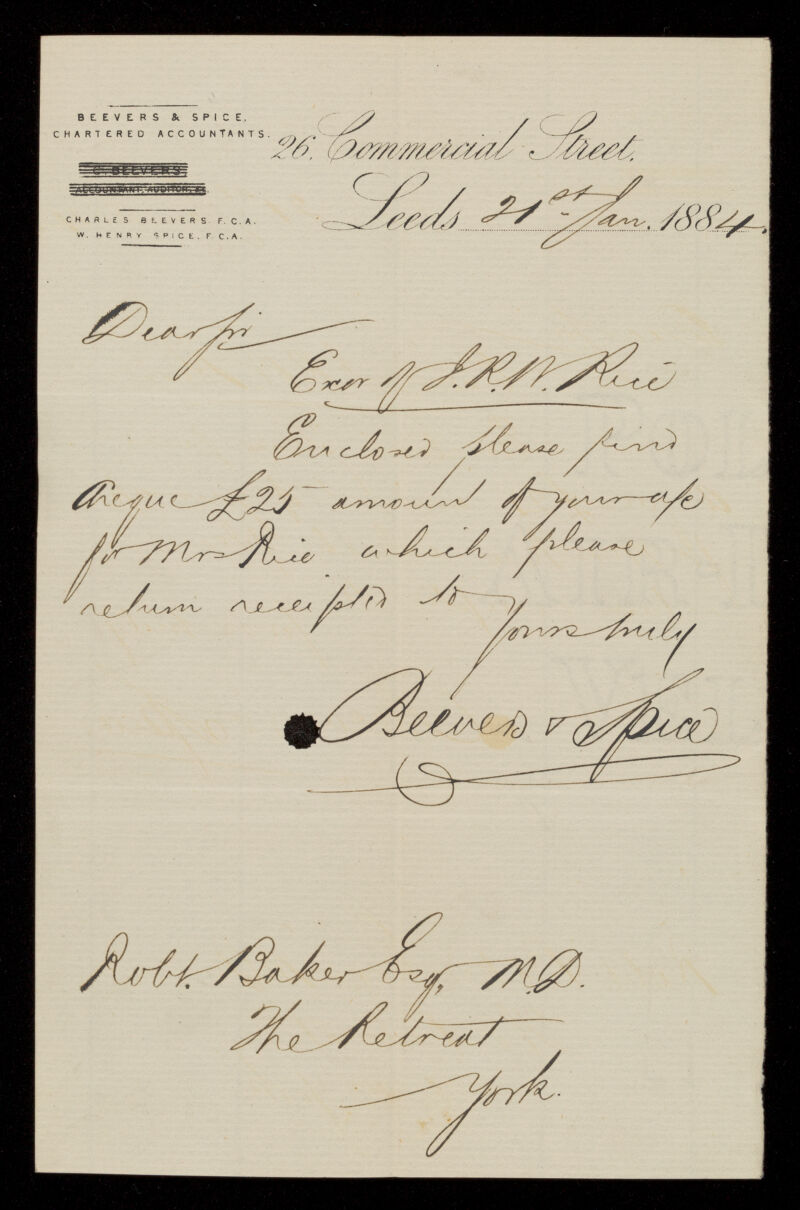 BEEVERS & SPICE,
CHARTERED ACCOUNTANTS.
C. BEEVERS
ACCOUNTANT, AUDITOR, &c.
CHARLES BEEVERS, F.C.A.
W. HENRY SPICE, F.C.A.
26, Commercial Street,
Leeds 21st Jan. 1884.
Dear Sir
Exor of J.R.W. Rice
Enclosed please find
cheque £25 amount of your a/c
for Mrs Rice which please
return receipted to
Yours truly
Beevers & Spice
Robt. Baker Esq, M.D.
The Retreat
York.